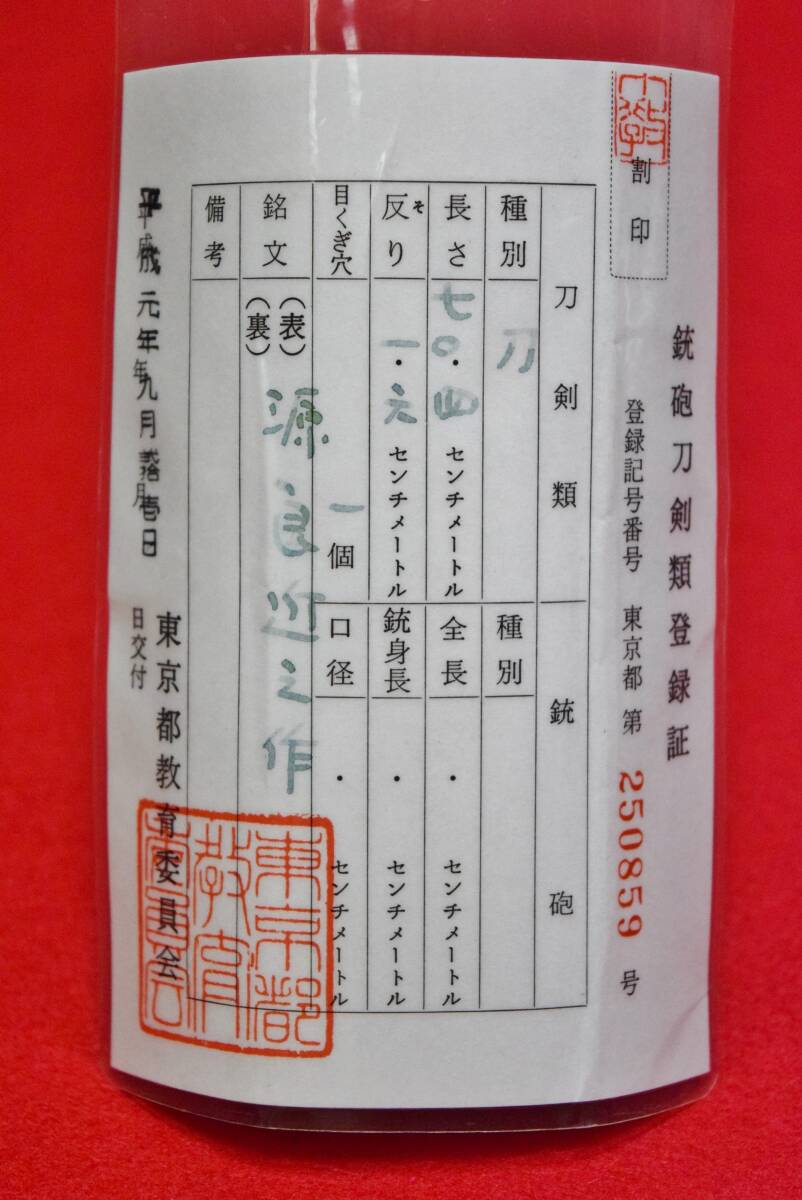 銃砲刀剣類登録証
割印
登録記号番号 東京都 第 250859 号
刀剣類
銃砲
種別 刀
種別
長さ 七〇・四 センチメートル
全長 ・ センチメートル
反り そ 一・六 センチメートル
銃身長 ・ センチメートル
目くぎ穴 一個
口径 ・ センチメートル
銘文 (表) 源良近之作
(裏)
備考
東京都教育委員会
平成元年九月 壱日
日交付
東京都教育委員会